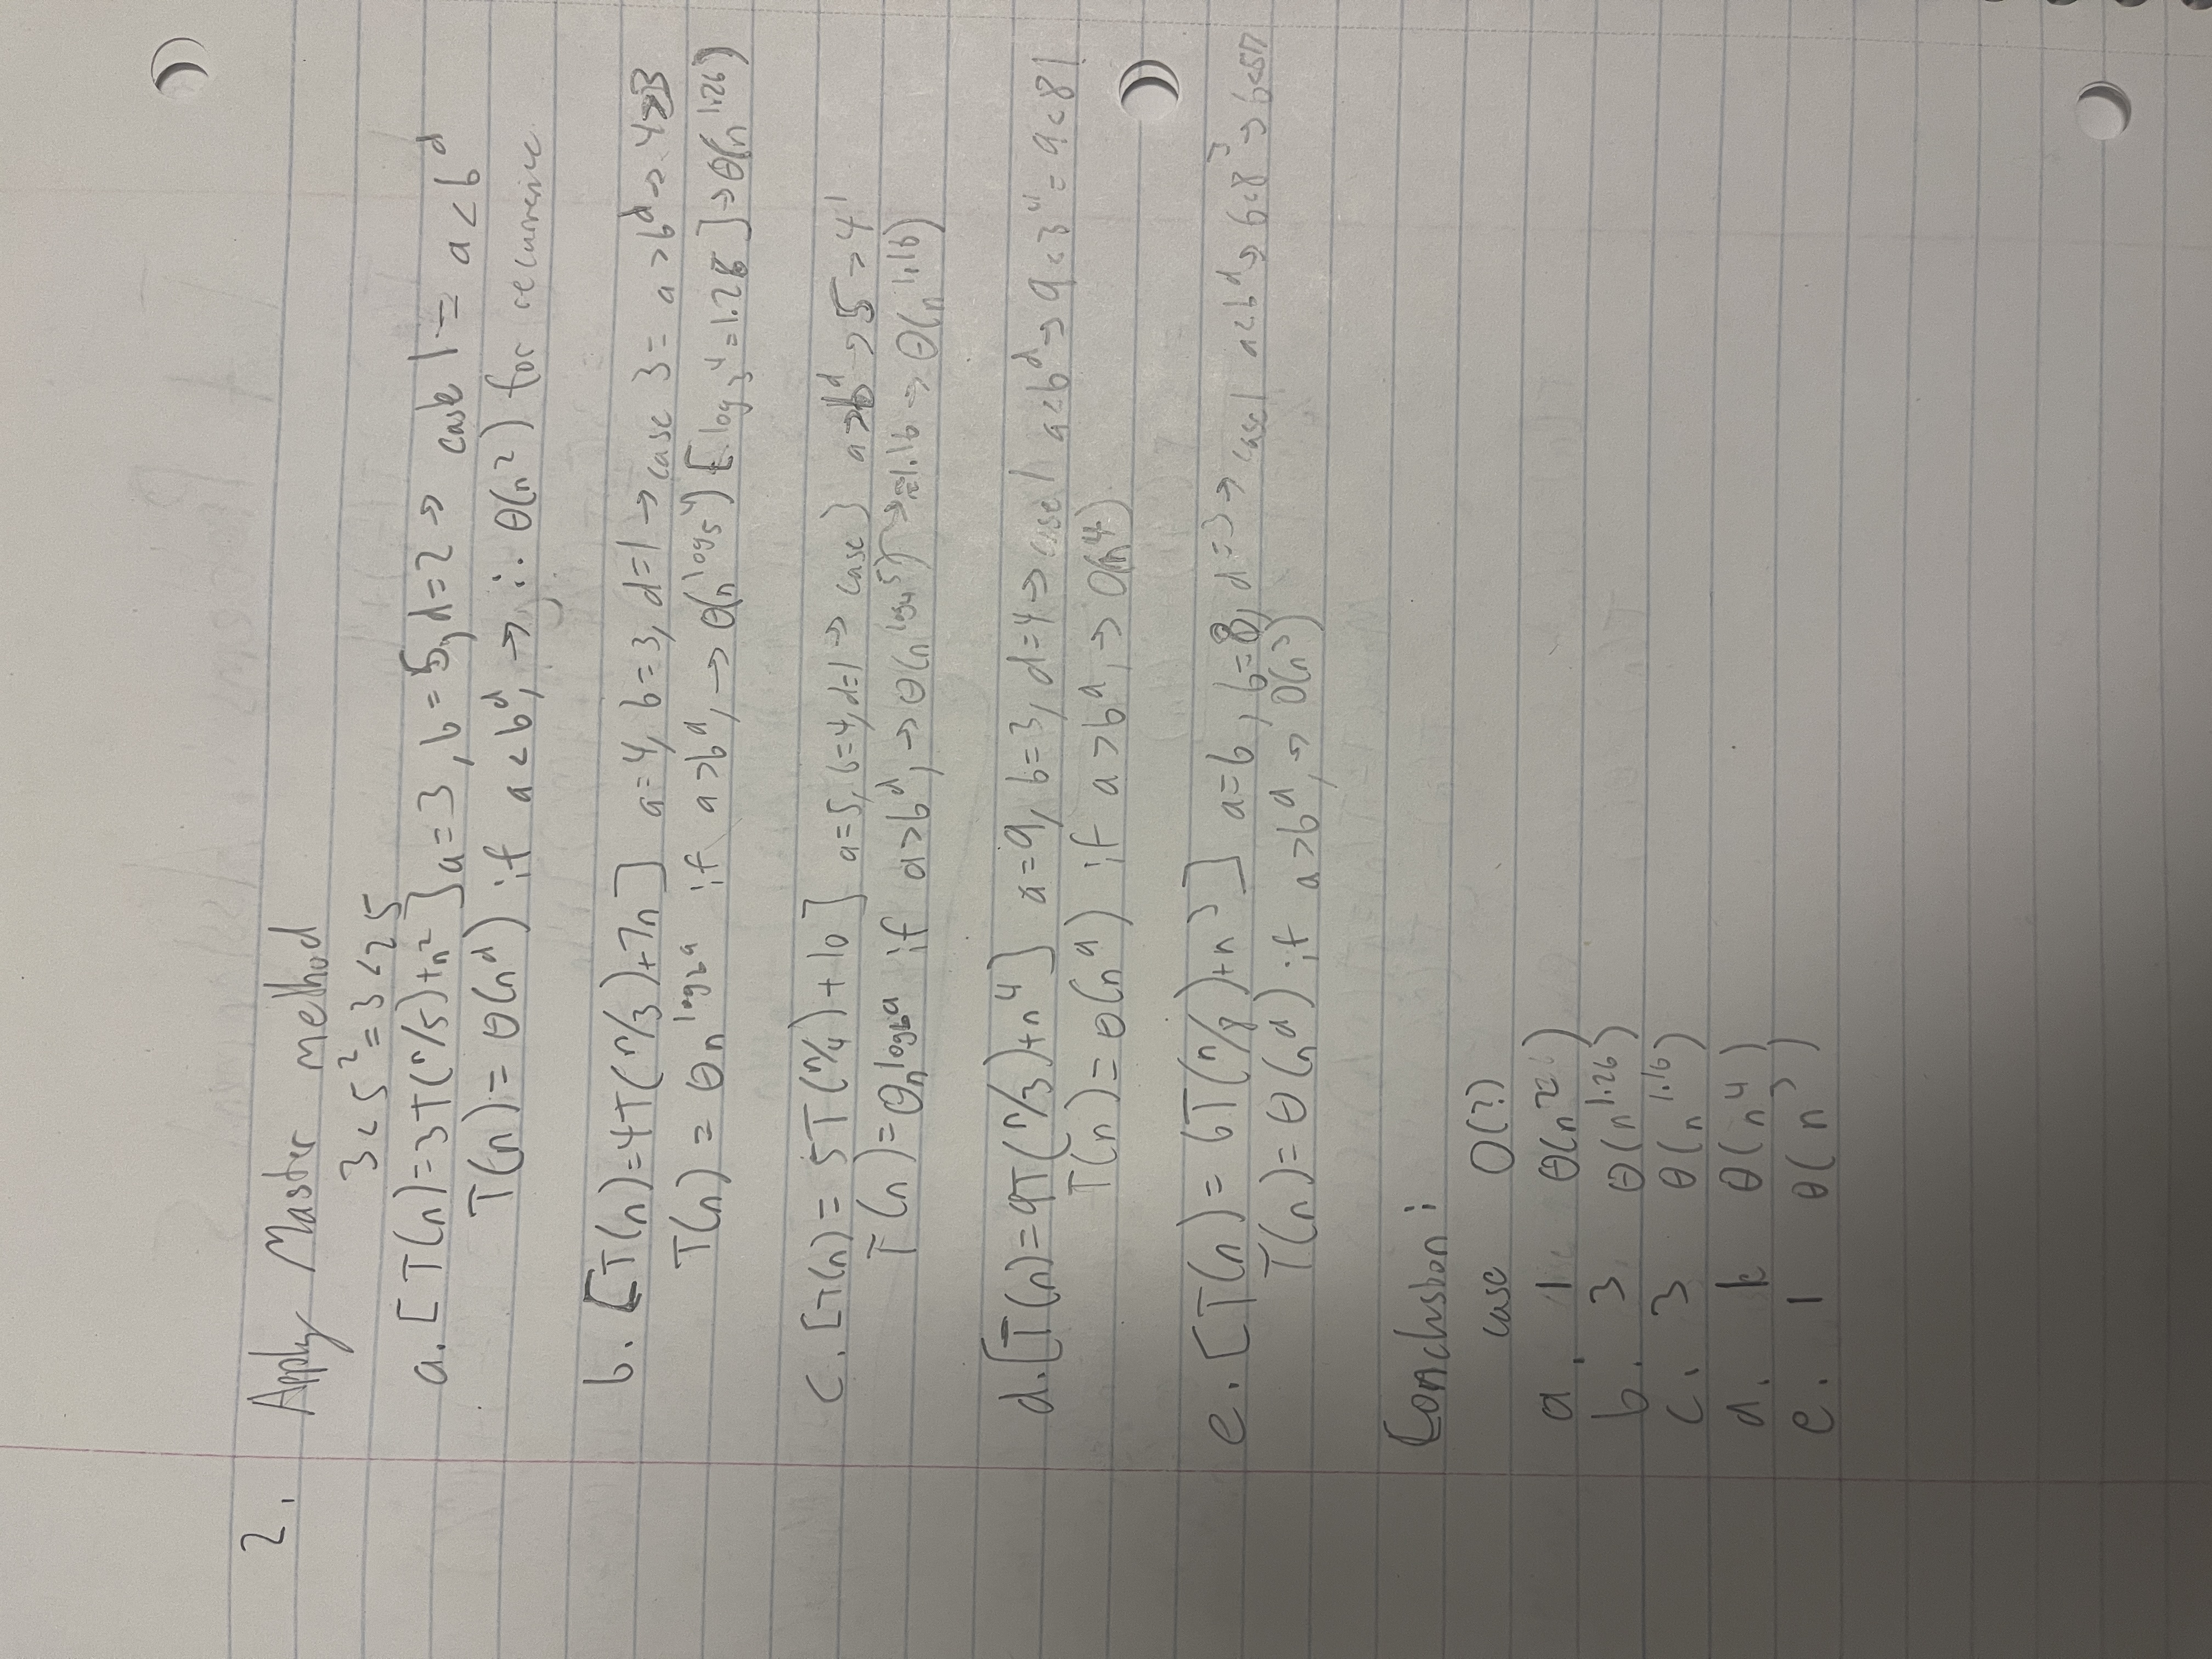 2. Apply Master method
3 < 5² = 3 < 25
a. [T(n)=3T(n/5)+n²] a=3, b=5, d=2 → case 1 = a < b^d
T(n) = Θ(n^d) if a < b^d, → ∴ Θ(n²) for recurrence
b. [T(n)=4T(n/3)+7n] a=4, b=3, d=1 → case 3 = a > b^d → 4>3
T(n) = Θn^log_b a if a>b^d, → Θ(n^log_5 4) [log_3 4 = 1.26] → Θ(n^1.26)
c. [T(n) = 5T(n/4) + 10] a=5, b=4, d=1 → case 3 a>b^d → 5 > 4^1
T(n) = Θn^log_b a if a>b^d, → Θ(n^log_4 5) → ≈1.16 → Θ(n^1.16)
d. [T(n)=9T(n/3)+n^4] a=9, b=3, d=4 → case 1 a<b^d → 9<3^4 = 9<81
T(n) = Θ(n^d) if a > b^d, → O(n^4)
e. [T(n) = 6T(n/8)+n³] a=6, b=8, d=3 → case 1 a<b^d → 6<8³ → 6<
T(n) = Θ(n^d) if a>b^d, → O(n³)
Conclusion:
case O(?)
a. 1 Θ(n²)
b. 3 Θ(n^1.26)
c. 3 Θ(n^1.16)
d. Θ(n^4)
e. 1 Θ(n³)